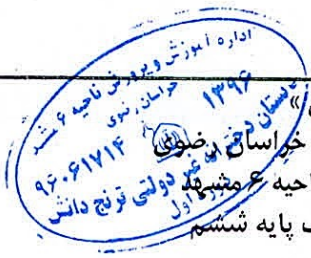 اداره آموزش و پرورش ناحیه ۶ مشهد
خراسان رضوی
۱۳۹۶
دبستان دخترانه غیر دولتی ترنج دانش
۹۶۰۶۱۷۱۴
دوره اول
»
خراسان رضوی
ناحیه ۶ مشهد
پایه ششم